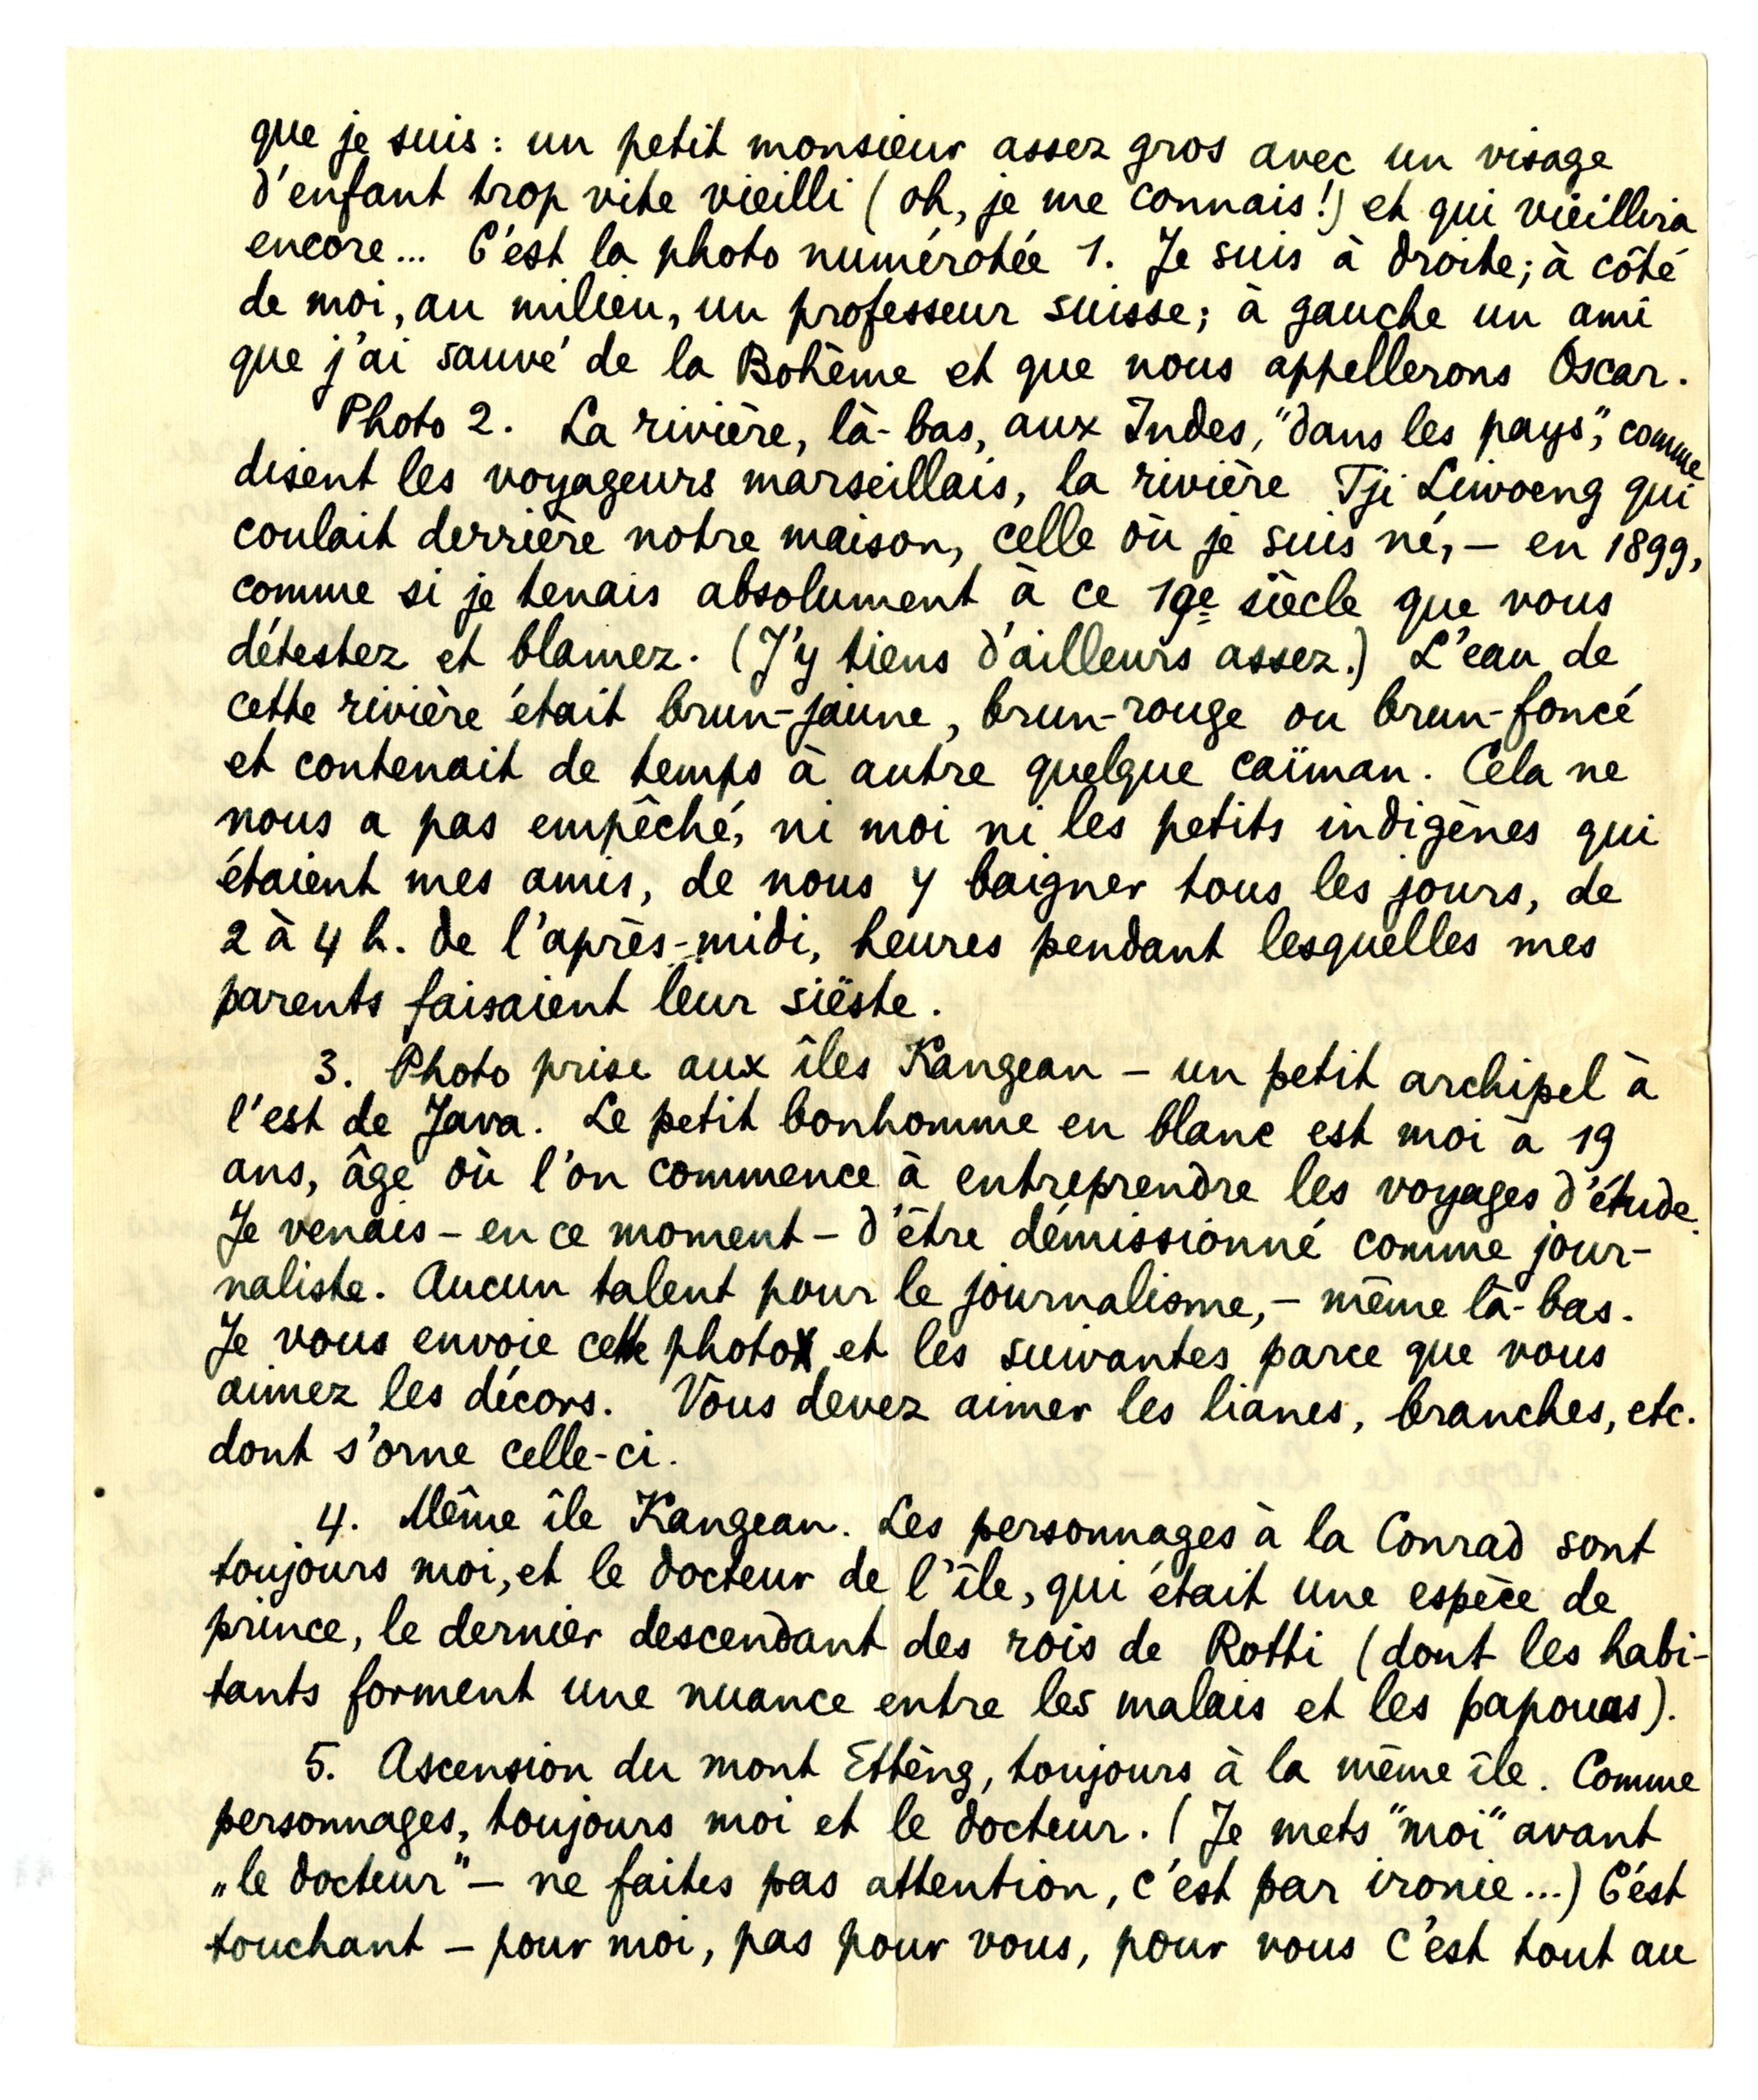 que je suis : un petit monsieur assez gros avec un visage
d'enfant trop vite vieilli (oh, je me connais!) et qui vieillira
encore... C'est la photo numérotée 1. Je suis à droite; à côté
de moi, au milieu, un professeur suisse; à gauche un ami
que j'ai sauvé de la Bohème et que nous appellerons Oscar.
Photo 2. La rivière, là-bas, aux Indes, "dans les pays", comme
disent les voyageurs marseillais, la rivière Tji Liwoeng qui
coulait derrière notre maison, celle où je suis né, – en 1899,
comme si je tenais absolument à ce 19e siècle que vous
détestez et blamez. (J'y tiens d'ailleurs assez.) L'eau de
cette rivière était brun-jaune, brun-rouge ou brun-foncé
et contenait de temps à autre quelque caïman. Cela ne
nous a pas empêché, ni moi ni les petits indigènes qui
étaient mes amis, de nous y baigner tous les jours, de
2 à 4 h. de l'après-midi, heures pendant lesquelles mes
parents faisaient leur siëste.
3. Photo prise aux îles Kangean – un petit archipel à
l'est de Java. Le petit bonhomme en blanc est moi à 19
ans, âge où l'on commence à entreprendre les voyages d'étude.
Je venais – en ce moment – d'être démissionné comme jour-
naliste. Aucun talent pour le journalisme, – même là-bas.
Je vous envoie cette photo et les suivantes parce que vous
aimez les décors. Vous devez aimer les lianes, branches, etc.
dont s'orne celle-ci.
4. Même île Kangean. Les personnages à la Conrad sont
toujours moi, et le docteur de l'île, qui était une espèce de
prince, le dernier descendant des rois de Rotti (dont les habi-
tants forment une nuance entre les malais et les papouas).
5. Ascension du mont Ettèng, toujours à la même île. Comme
personnages, toujours moi et le docteur. (Je mets "moi" avant
„le docteur" – ne faites pas attention, c'est par ironie...) C'est
touchant – pour moi, pas pour vous, pour vous c'est tout au